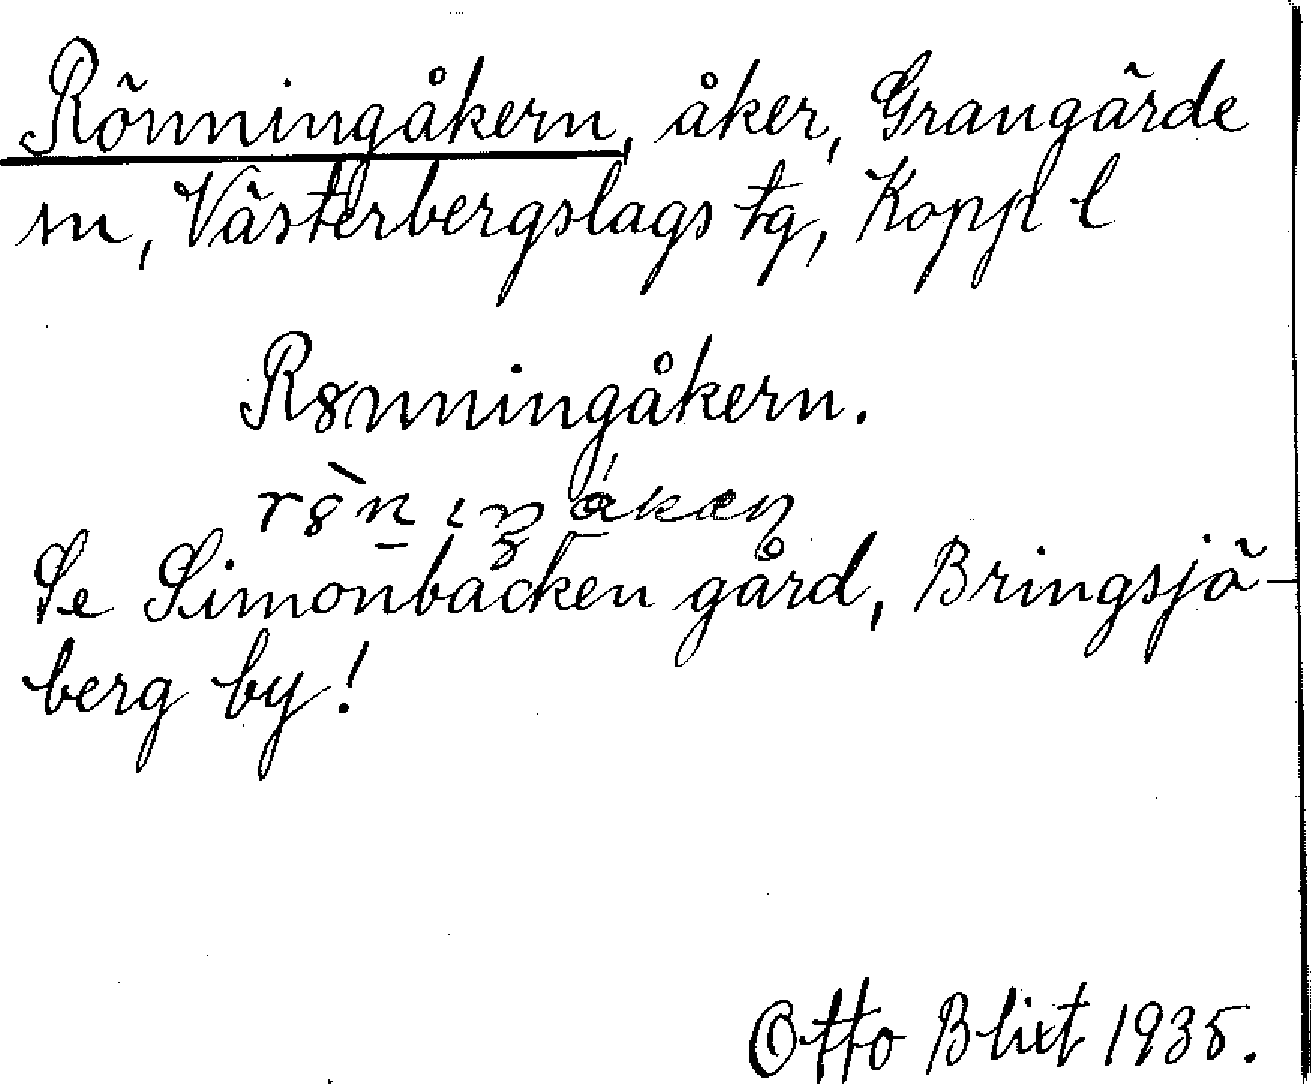 Rönningåkern, åker, Grangärde
sn, Västerbergslags tg, Koppl l
Rȣnningåkern.
Se Simonbacken gård, Bringsjö-
berg by!
Otto Blixt 1935.